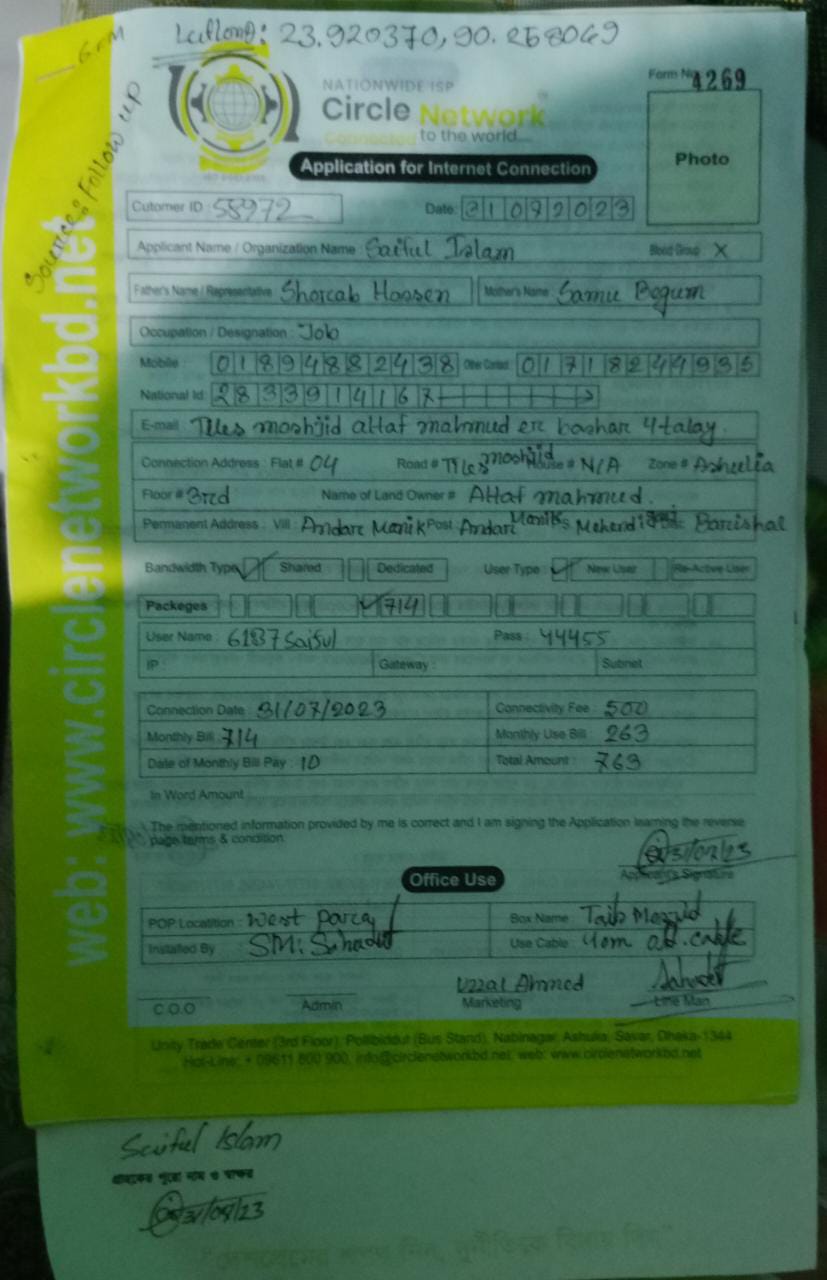 Latlong: 23.920370, 90.258069
Source: Follow up
NATIONWIDE ISP
Form No 4269
Circle Network
Connected to the world....
Photo
Application for Internet Connection
Cutomer ID : 58972 Date: 31072023
Applicant Name / Organization Name : Saiful Islam Blood Group X
Father's Name / Representative Shorcab Hossen Mother's Name Samu Begum
Occupation / Designation : Job
Mobile : 01894882438 Other Contact: 01718244935
National Id: 2833914167
E-mail : Tiles moshjid altaf mahmud er bashar 4 talay.
Connection Address : Flat # 04 Road # Tiles moshjid House # N/A Zone # Ashulia
Floor # 3rd Name of Land Owner # Altaf mahmud.
Permanent Address : Vill : Andar Manik Post : Andar Manik Barishal
Bandwidth Type Shared Dedicated User Type : New User Re-Active User
Packeges 714
User Name : 6187saiful Pass : 44455
IP : Gateway : Subnet
Connection Date : 31/07/2023 Connectivity Fee : 500
Monthly Bill : 714 Monthly Use Bill : 263
Date of Monthly Bill Pay : 10 Total Amount : 763
In Word Amount
The mentioned information provided by me is correct and I am signing the Application learning the reverse
page terms & condition.
31/07/23
Applicant's Signature
Office Use
POP Locatition : West Parca Box Name : Taib Mosjid
Installed By SM: Sahadat Use Cable : 40m cable
Uzzal Ahmed Sahadat
C.O.O Admin Marketing Line Man
Unity Trade Center (3rd Floor), Pollibiddut (Bus Stand), Nabinagar, Ashulia, Savar, Dhaka-1344
Hot-Line: + 09611 800 900, info@circlenetworkbd.net, web: www.circlenetworkbd.net
web: www.circlenetworkbd.net
Saiful Islam
গ্রাহকের পুরো নাম ও স্বাক্ষর
31/07/23